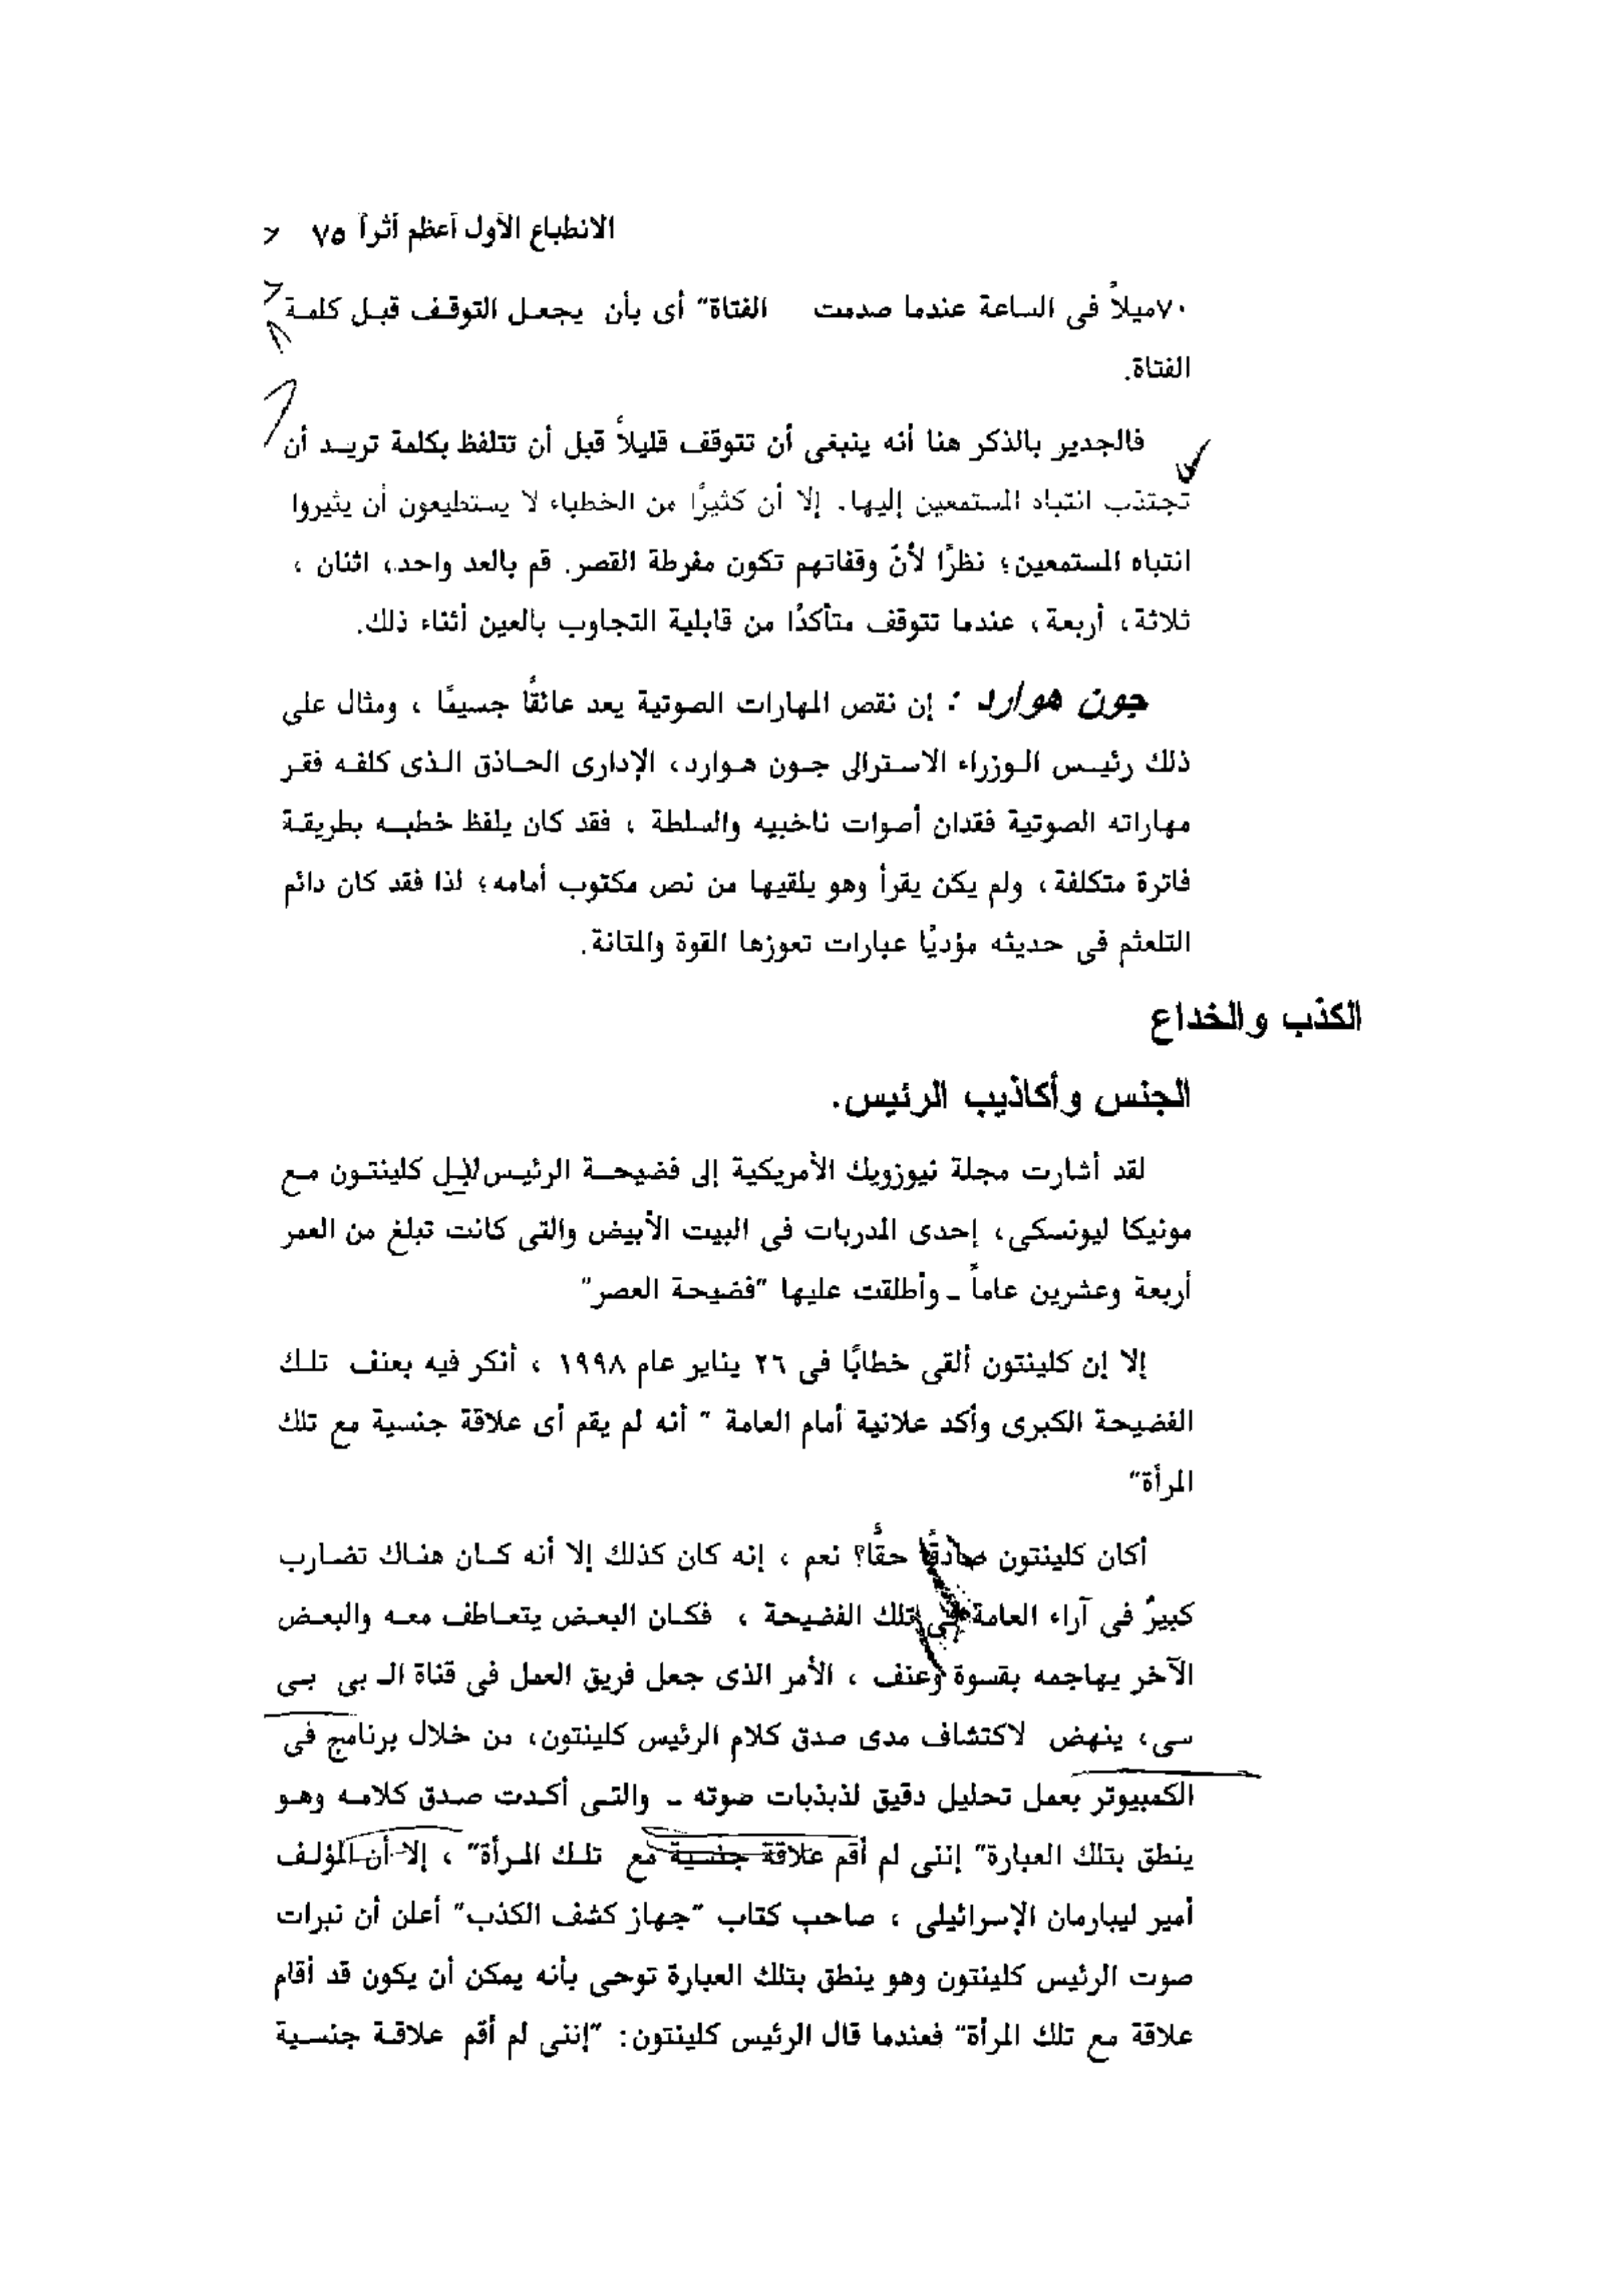 الانطباع الأول أعظم أثراً ٧٥
٧٠ميلاً فى الساعة عندما صدمت الفتاة" أى بأن يجعل التوقف قبل كلمة
الفتاة.
فالجدير بالذكر هنا أنه ينبغى أن تتوقف قليلاً قبل أن تتلفظ بكلمة تريد أن
تجتذب انتباه المستمعين إليها. إلا أن كثيرًا من الخطباء لا يستطيعون أن يثيروا
انتباه المستمعين؛ نظرًا لأنّ وقفاتهم تكون مفرطة القصر. قم بالعد واحد، اثنان ،
ثلاثة، أربعة، عندما تتوقف متأكدًا من قابلية التجاوب بالعين أثناء ذلك.
جون هوارد : إن نقص المهارات الصوتية يعد عائقًا جسيمًا ، ومثال على
ذلك رئيس الوزراء الاسترالى جون هوارد، الإدارى الحاذق الذى كلفه فقر
مهاراته الصوتية فقدان أصوات ناخبيه والسلطة ، فقد كان يلفظ خطبه بطريقة
فاترة متكلفة، ولم يكن يقرأ وهو يلقيها من نص مكتوب أمامه؛ لذا فقد كان دائم
التلعثم فى حديثه مؤديًا عبارات تعوزها القوة والمتانة.
الكذب والخداع
الجنس وأكاذيب الرئيس.
لقد أشارت مجلة نيوزويك الأمريكية إلى فضيحة الرئيس بل كلينتون مع
مونيكا ليونسكى، إحدى المدربات فى البيت الأبيض والتى كانت تبلغ من العمر
أربعة وعشرين عاماً ـ وأطلقت عليها "فضيحة العصر"
إلا إن كلينتون ألقى خطابًا فى ٢٦ يناير عام ١٩٩٨ ، أنكر فيه بعنف تلك
الفضيحة الكبرى وأكد علانية أمام العامة " أنه لم يقم أى علاقة جنسية مع تلك
المرأة"
أكان كلينتون صادقًا حقًا؟ نعم ، إنه كان كذلك إلا أنه كان هناك تضارب
كبيرٌ فى آراء العامة فى تلك الفضيحة ، فكان البعض يتعاطف معه والبعض
الآخر يهاجمه بقسوة وعنف ، الأمر الذى جعل فريق العمل فى قناة الـ بى بى
سى، ينهض لاكتشاف مدى صدق كلام الرئيس كلينتون، من خلال برنامج فى
الكمبيوتر بعمل تحليل دقيق لذبذبات صوته ـ والتى أكدت صدق كلامه وهو
ينطق بتلك العبارة" إننى لم أقم علاقة جنسية مع تلك المرأة" ، إلا أن المؤلف
أمير ليبارمان الإسرائيلى ، صاحب كتاب "جهاز كشف الكذب" أعلن أن نبرات
صوت الرئيس كلينتون وهو ينطق بتلك العبارة توحى بأنه يمكن أن يكون قد أقام
علاقة مع تلك المرأة" فعندما قال الرئيس كلينتون: "إننى لم أقم علاقة جنسية